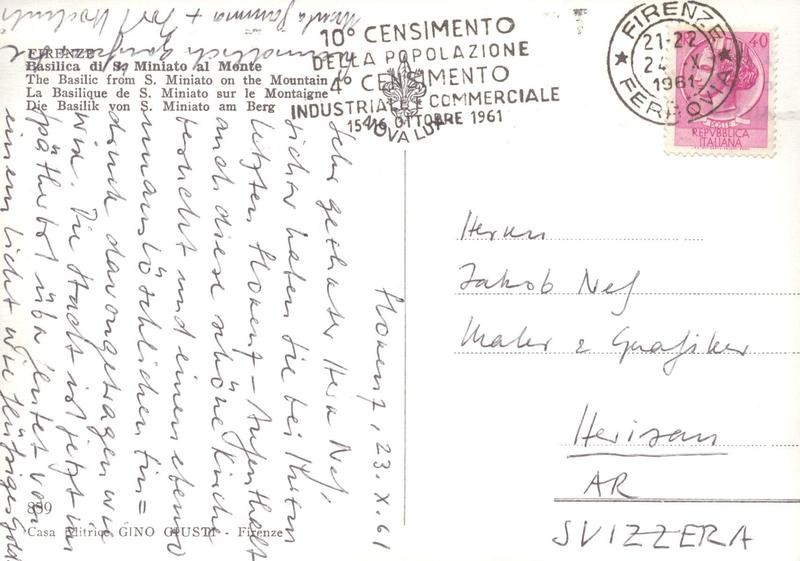 10° CENSIMENTO
DELLA POPOLAZIONE
4° CENSIMENTO
INDUSTRIALE E COMMERCIALE
15-16 OTTOBRE 1961
FIRENZE
21-22
24 X
1961
FERROVIA
40
POSTE
REPVBBLICA
ITALIANA
FIRENZE
Basilica di S. Miniato al Monte
The Basilic from S. Miniato on the Mountain
La Basilique de S. Miniato sur le Montaigne
Die Basilik von S. Miniato am Berg
Florenz, 23. X. 61
Sehr geehrter Herr Nef,
sicher haben Sie bei Ihrem
letzten Florenz-Aufenthalt
auch diese schöne Kirche
besucht und einen ebenso
unauslöschlichen Ein=
druck davongetragen wie
wir. Die Stadt ist jetzt im
Spätherbst überflutet von
einem Licht wie flüssiges Gold.
Herrn
Jakob Nef
Maler & Grafiker
Herisau
AR
SVIZZERA
899
Casa Editrice GINO GIUSTI - Firenze